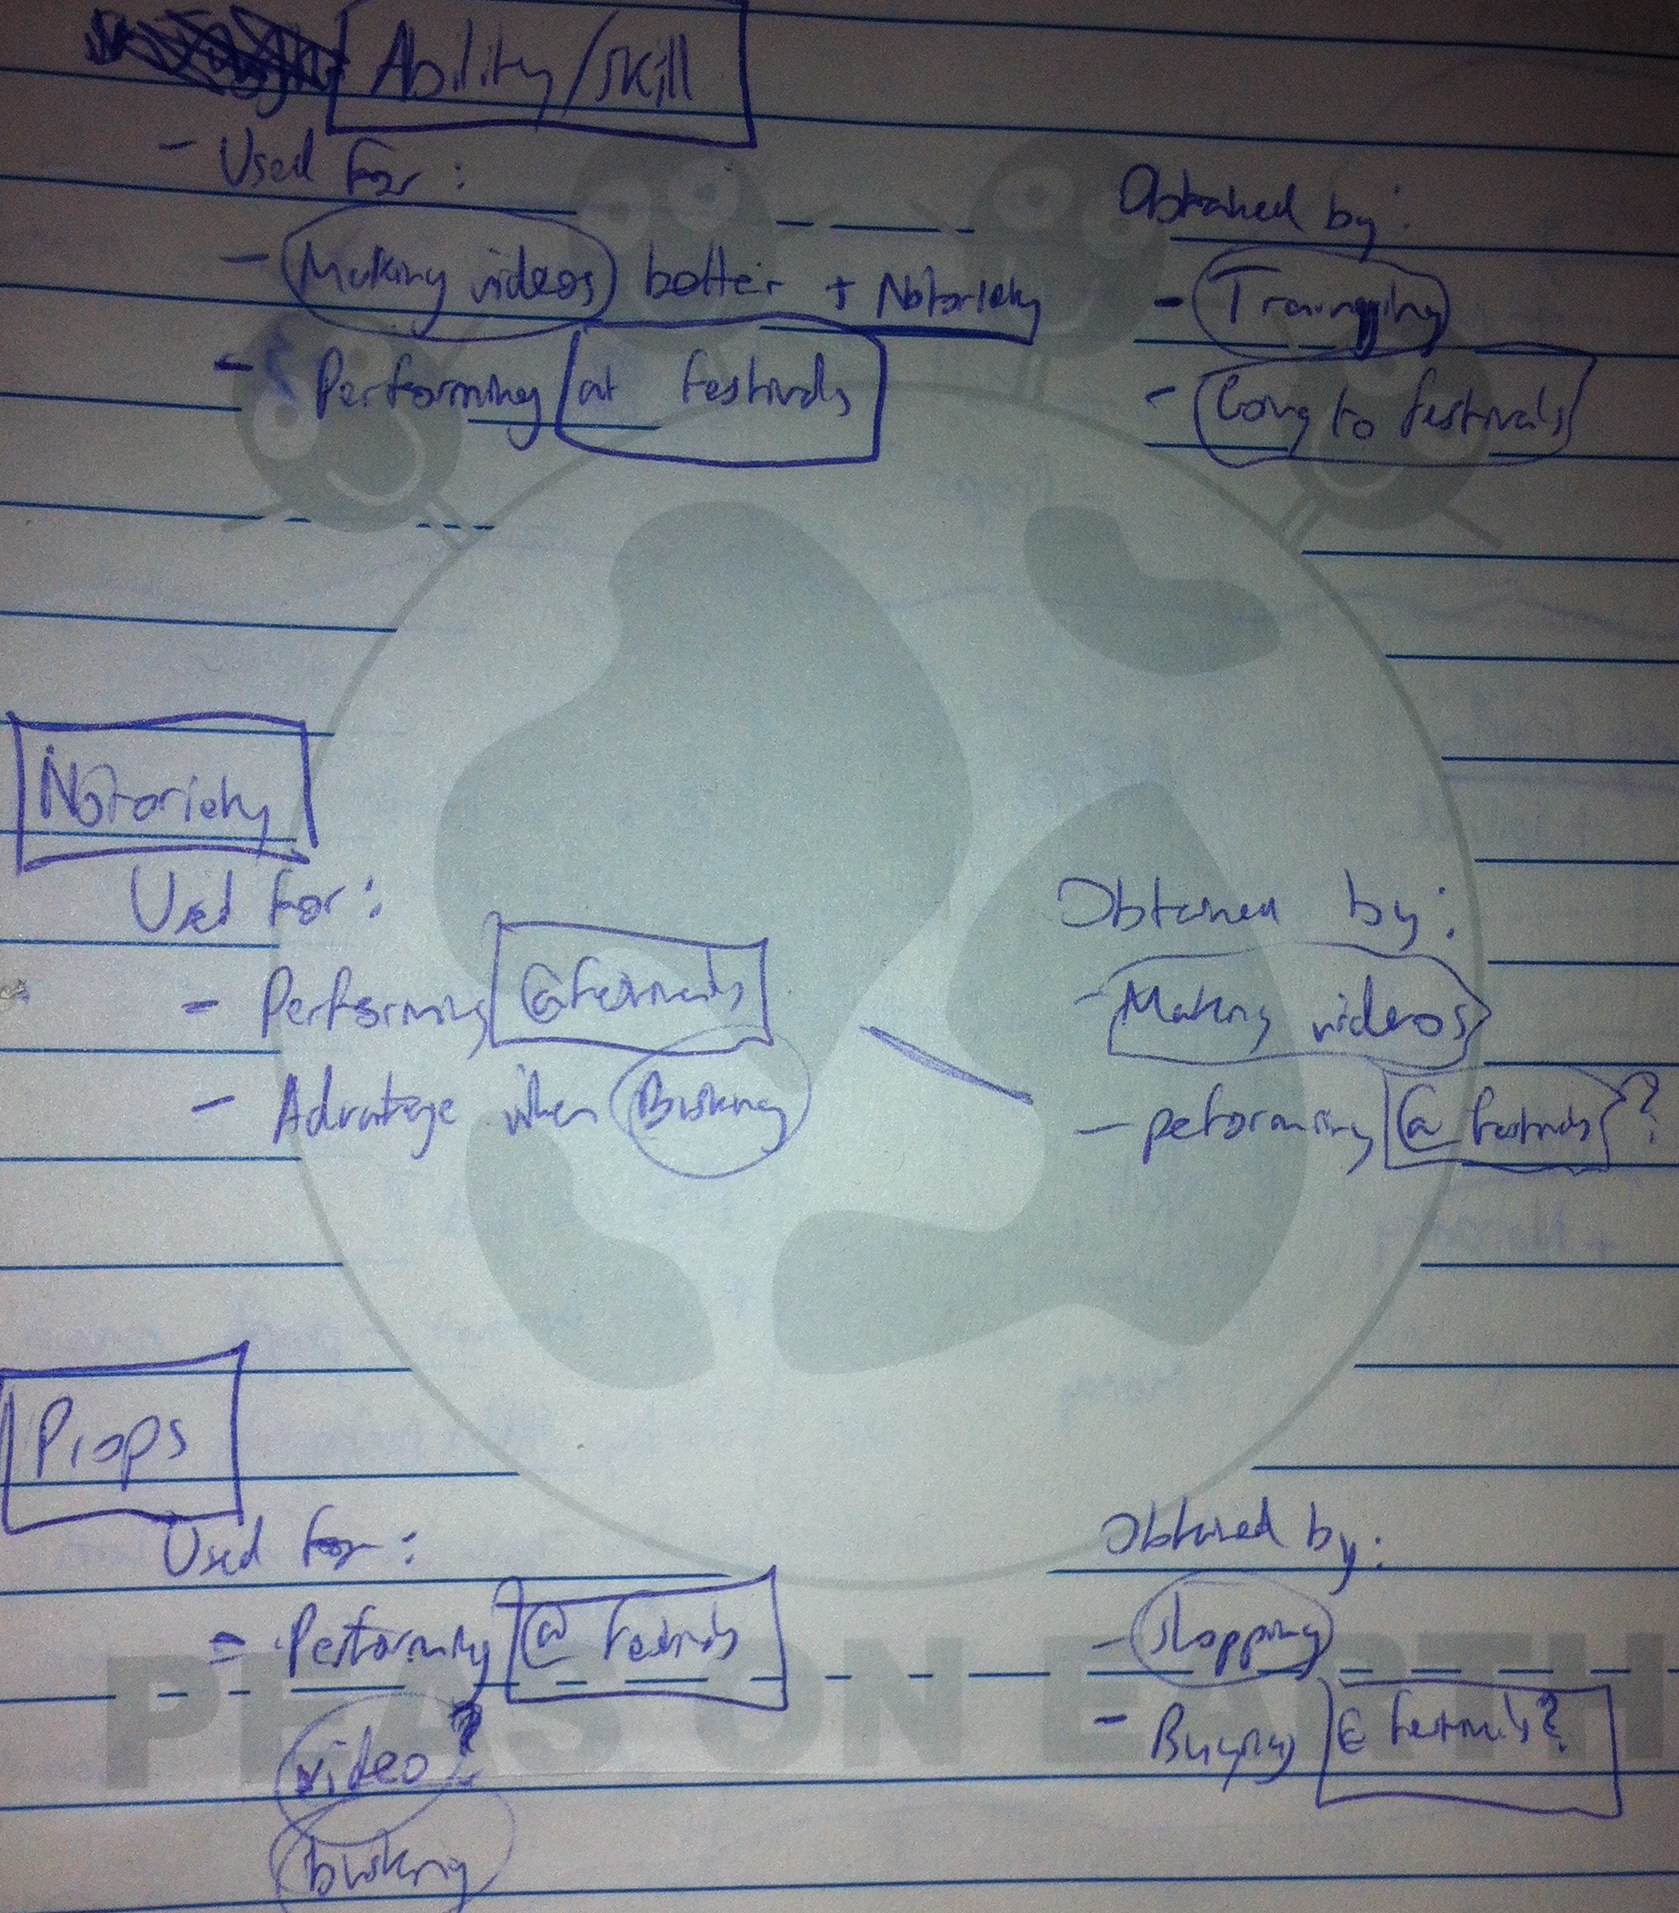 Ability/skill
- Used for:
- Making videos better + Notoriety
- Performing at festivals
Obtained by:
- Training
- Going to festivals
Notoriety
Used for:
- Performing @ festivals
- Advantage when Busking
Obtained by:
- Making videos
- peforming @ festivals?
Props
Used for:
- Performing @ festivals
video?
busking
Obtained by:
- shopping
- Buying @ festivals?
PEAS ON EARTH